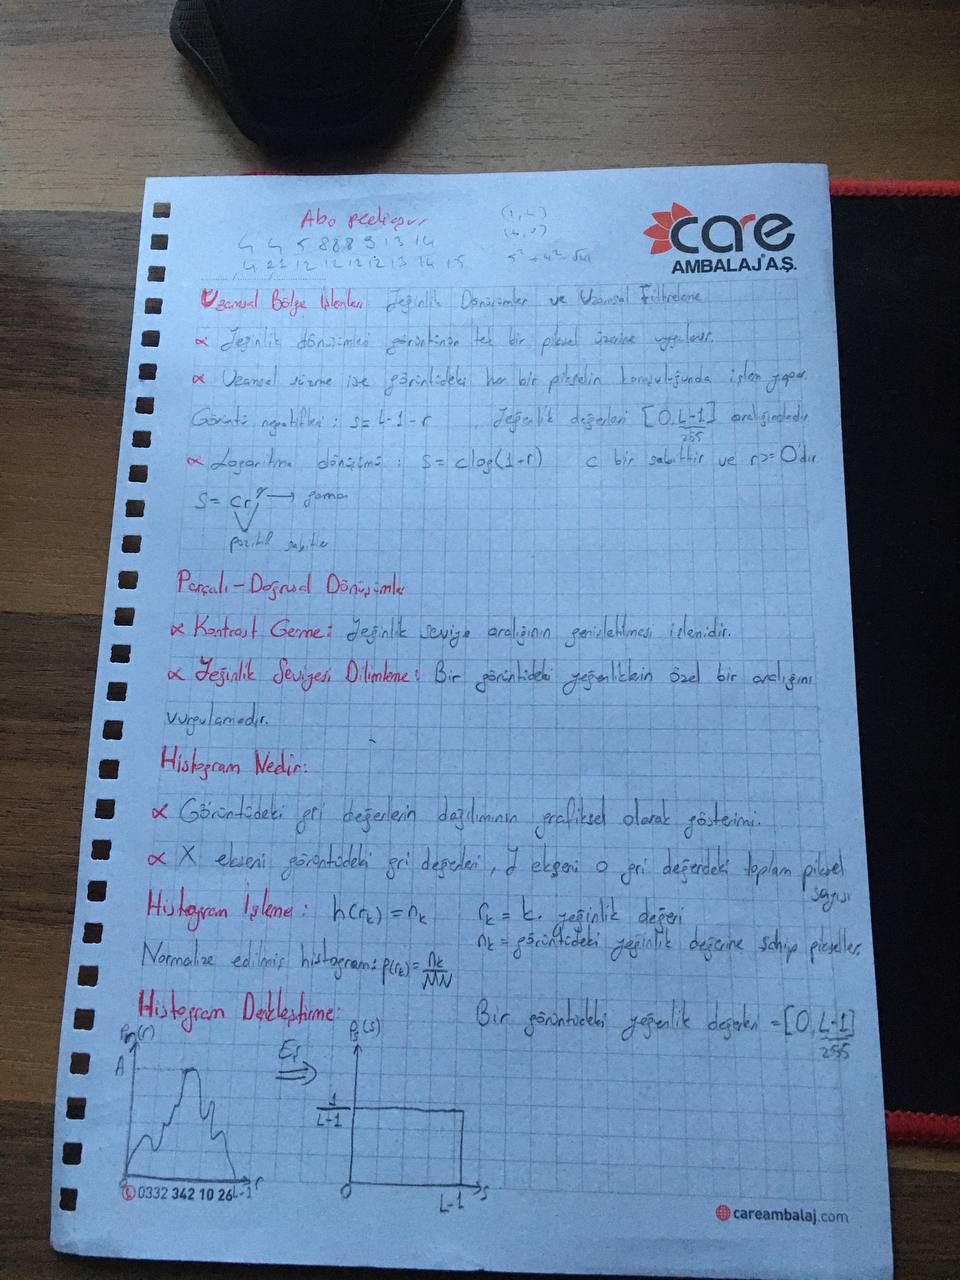 Abo
care
AMBALAJ A.Ş.
(1,4)
4 4 5 8 8 8 9 13 14
4 21 12 12 12 12 13 14 15
Uzamsal Bölge İşlemleri: Yeğinlik Dönüşümler ve Uzamsal Filtreleme
∝ Yeğinlik dönüşümleri görüntünün tek bir piksel üzerine uygulanır.
∝ Uzamsal süzme ise görüntüdeki her bir pikselin komşuluğunda işlem yapar.
Görüntü negatifleri: s= L-1-r Yeğenlik değerleri [0,L-1] aralığındadır
255
∝ Logaritma dönüşümü: s= clog(1+r) c bir sabittir ve r>=0'dır
S= cr^γ → gama
pozitif sabitler
Parçalı-Doğrusal Dönüşümler
∝ Kontrast Germe: Yeğinlik seviye aralığının genişletilmesi işlemidir.
∝ Yeğinlik Seviyesi Dilimleme: Bir görüntüdeki yeğenliklein özel bir aralığını
vurgulamadır.
Histogram Nedir:
∝ Görüntüdeki gri değerlerin dağılımının grafiksel olarak gösterimi.
∝ X ekseni görüntüdeki gri değerleri, Y ekseni o gri değerdeki toplam piksel
sayısı
Histogram İşleme: h(rk) = nk rk = k. yeğinlik değeri
nk = görüntüdeki yeğinlik değerine sahip pikseller.
Normalize edilmiş histogram: p(rk)= nk/MN
Histogram Denkleştirme: Bir görüntüdeki yeğenlik değerleri =[0,L-1]
255
(r) Ps(s)
A
1
L-1
0 L-1 r
0 L-1 s
0332 342 10 26
careambalaj.com